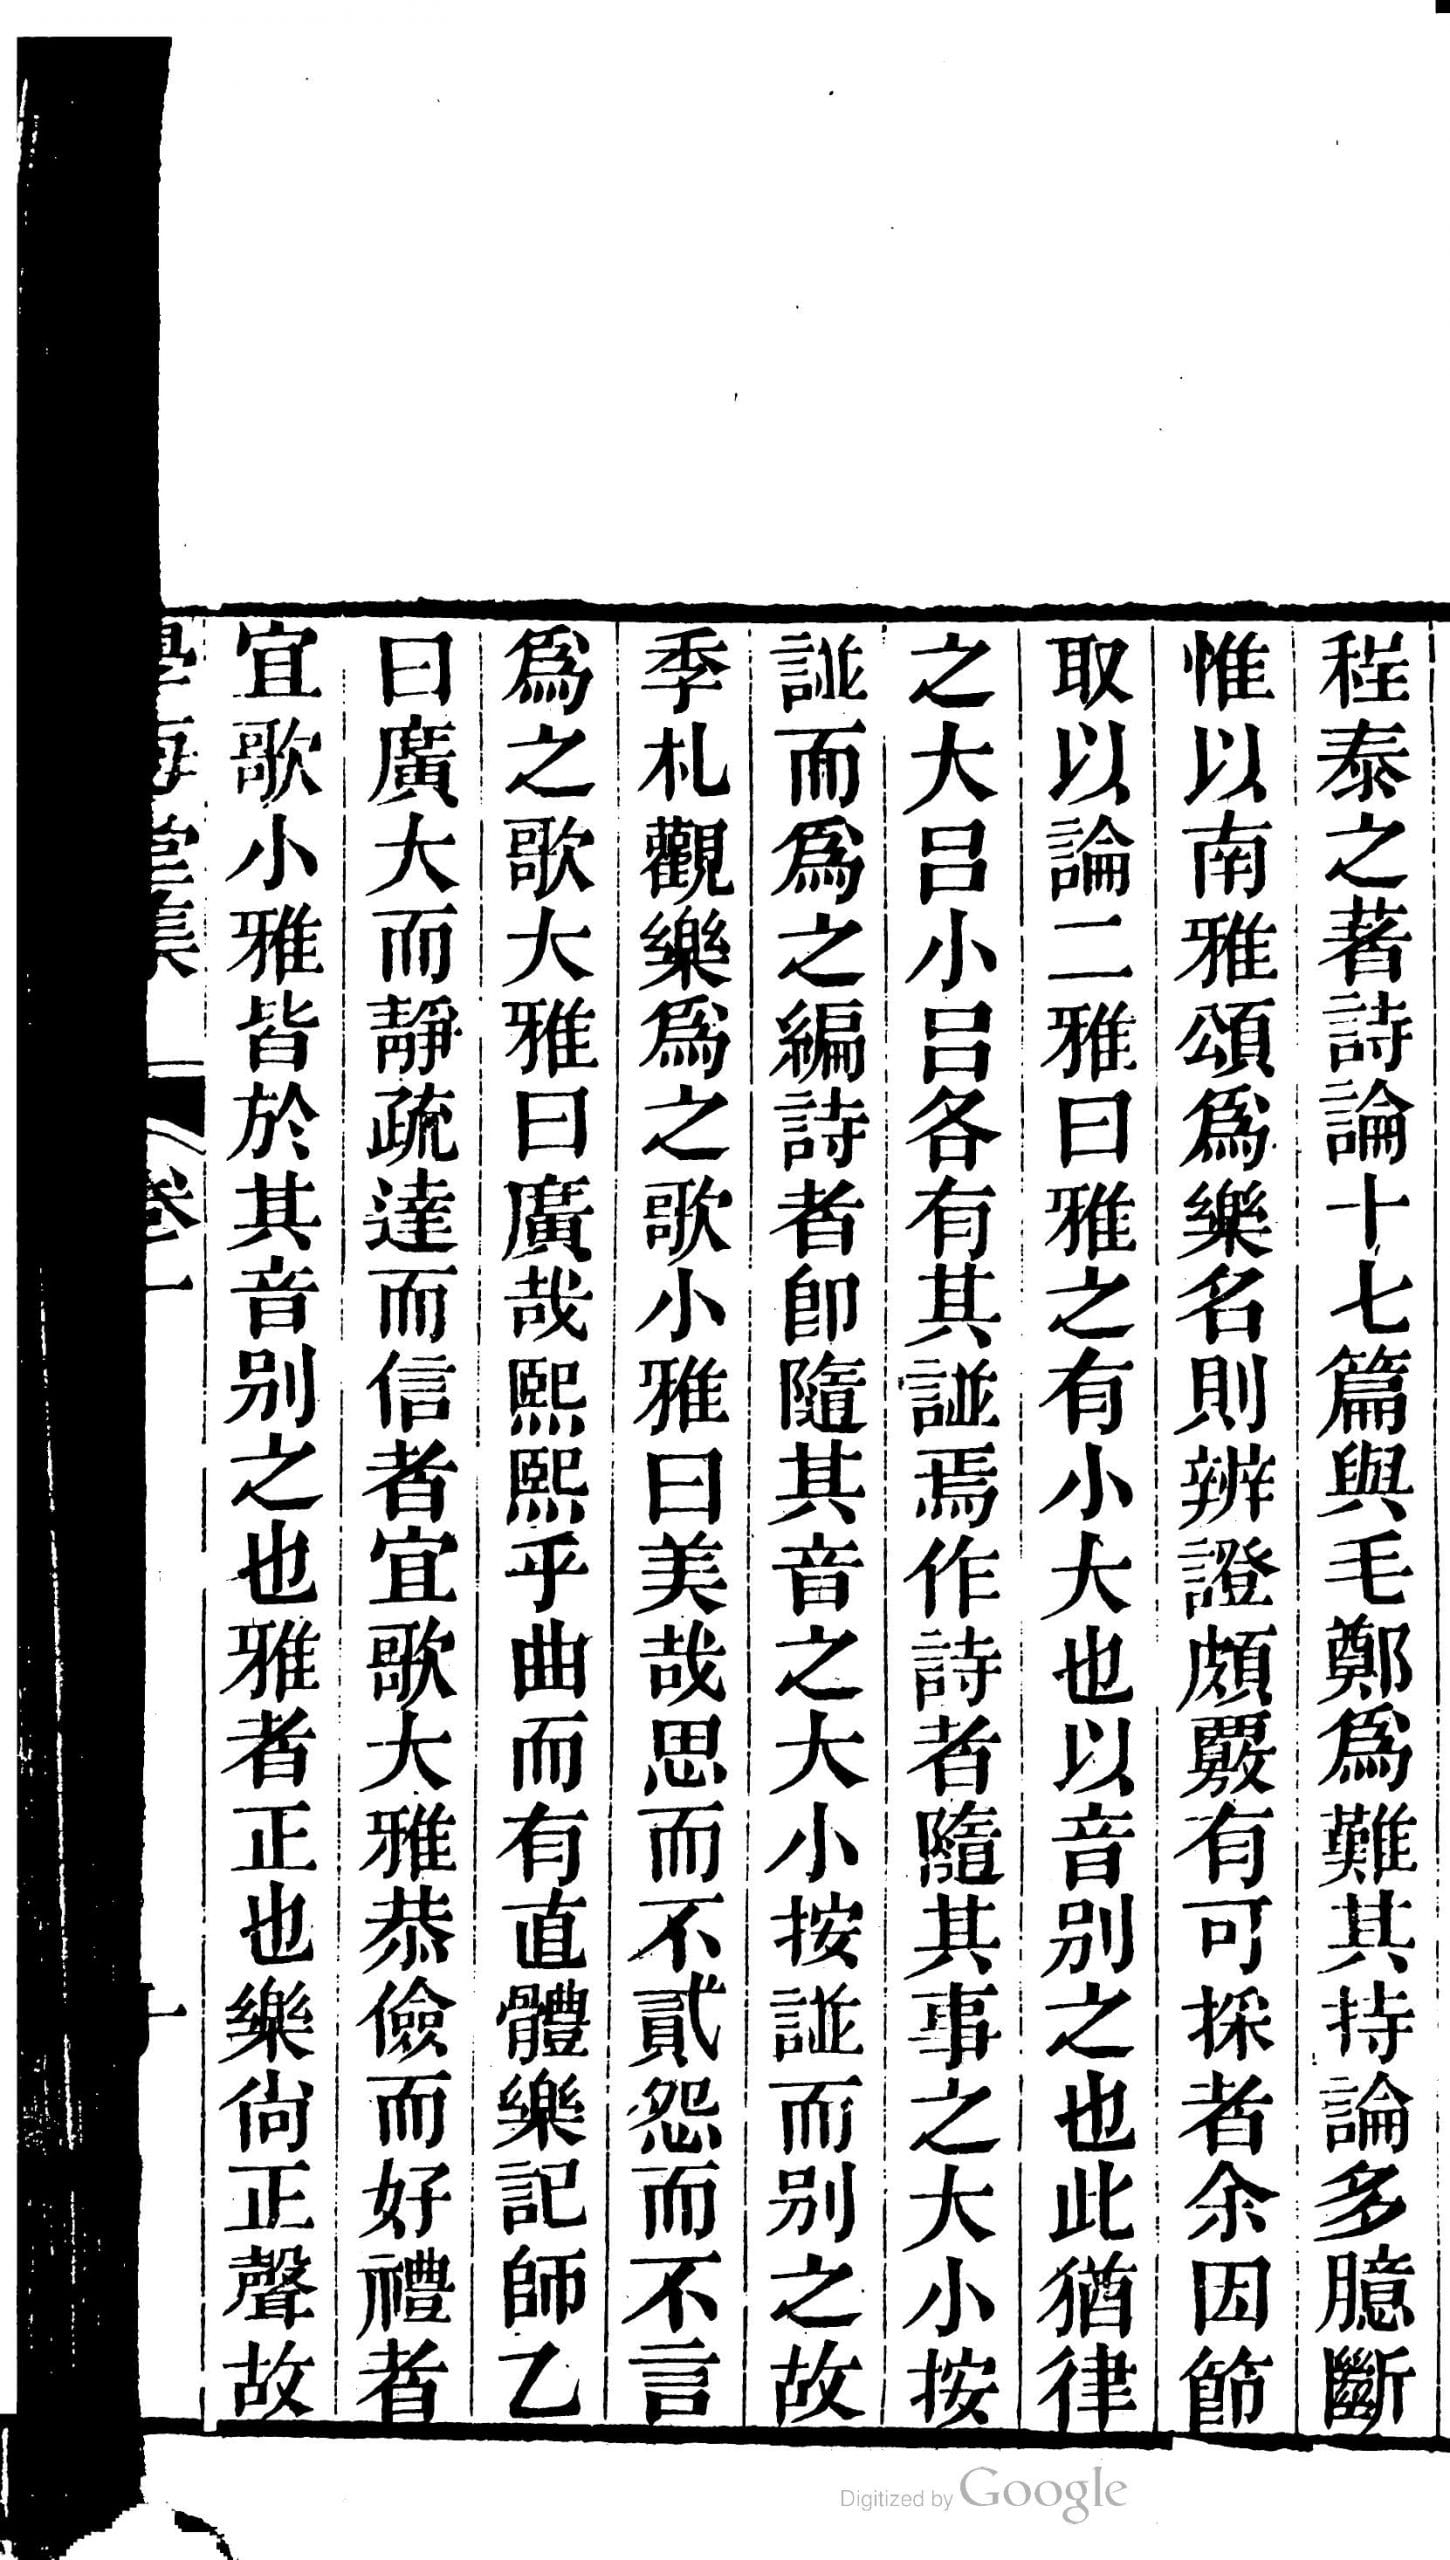 程泰之著詩論十七篇與毛鄭爲難其持論多臆斷
惟以南雅頌爲樂名則辨證頗覈有可採者余因節
取以論二雅曰雅之有小大也以音别之也此猶律
之大呂小呂各有其諩焉作詩者隨其事之大小按
諩而爲之編詩者卽隨其音之大小按諩而别之故
季札觀樂爲之歌小雅曰美哉思而不貳怨而不言
爲之歌大雅曰廣哉熙熙乎曲而有直體樂記師乙
曰廣大而靜疏達而信者宜歌大雅恭儉而好禮者
宜歌小雅皆於其音别之也雅者正也樂尙正聲故
學海堂集 卷一 十
Digitized by Google